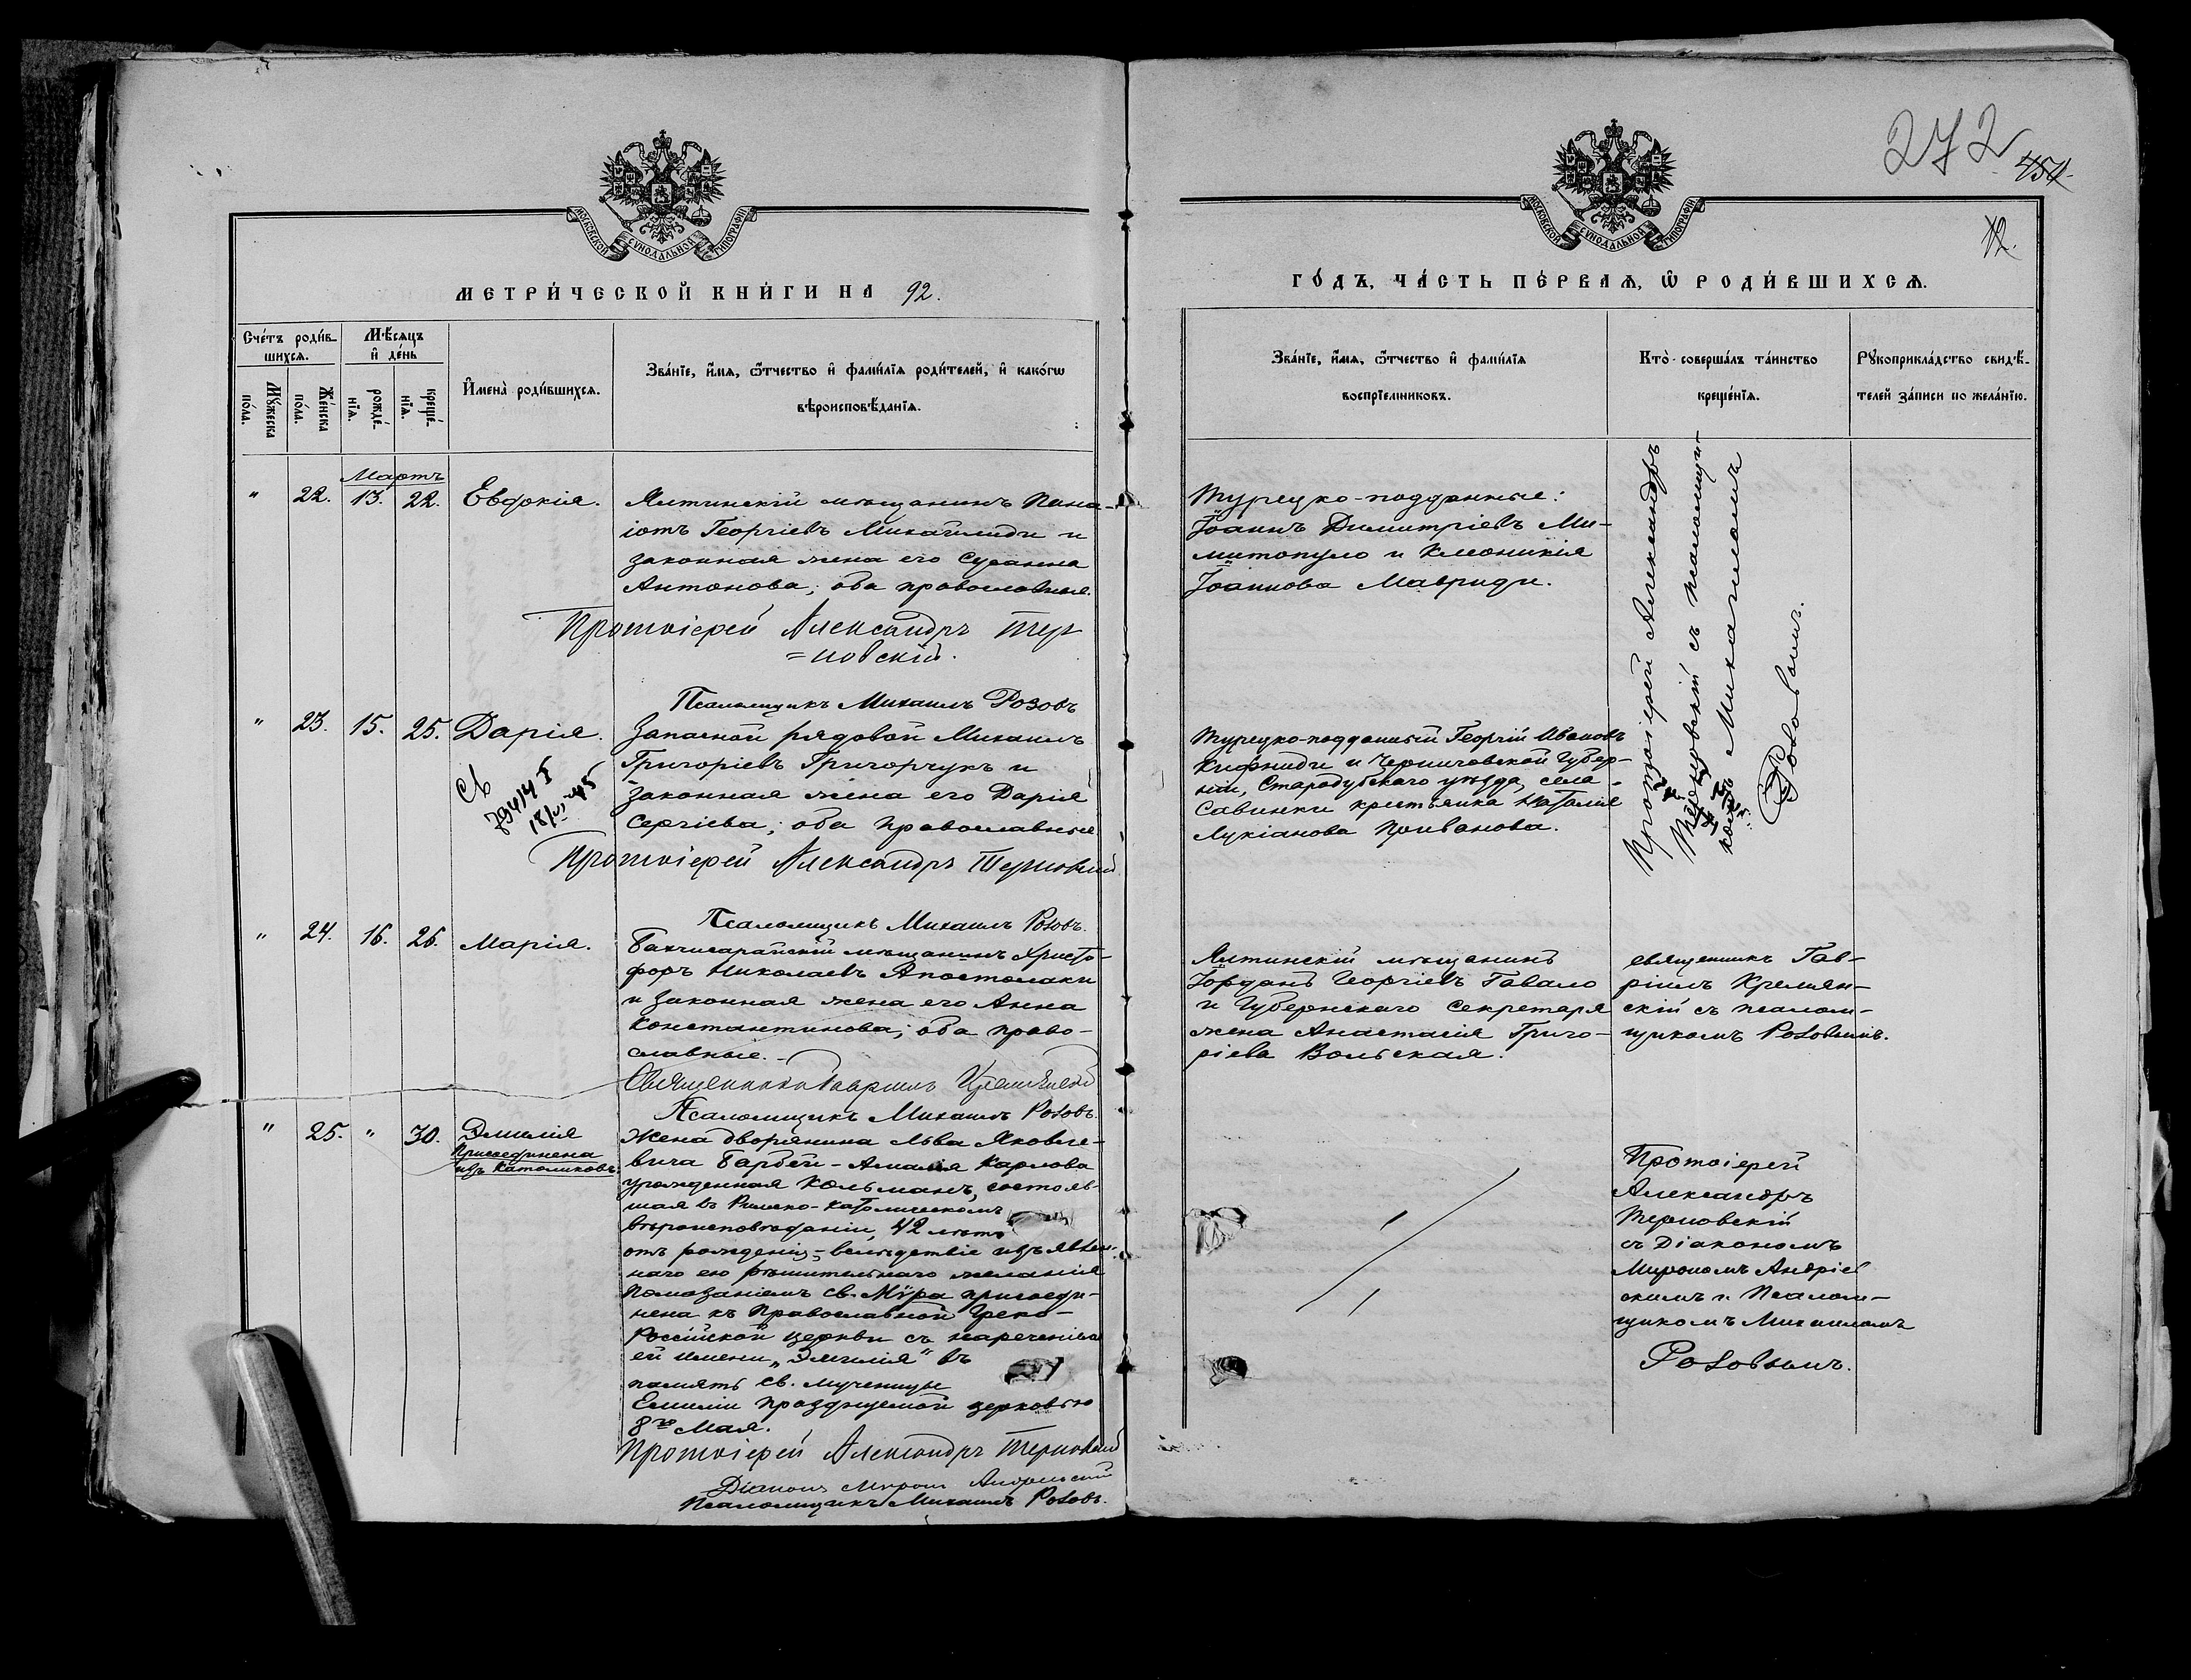 272
454
12.
МОСКОВСКОЙ СѴНОДАЛЬНОЙ ТИПОГРАФІИ
МЕТРИ́ЧЕСКОЙ КНИ́ГИ НА 92.
Сче́тъ роди́в-
шихсѧ.
Мѣ́сѧцъ
и҆ де́нь
Мꙋ́жеска
по́ла.
Же́нска
по́ла.
рожде́-
нїѧ.
креще́-
нїѧ.
И҆мена̀ роди́вшихсѧ.
Зва́нїе, и҆́мѧ, ѻ҆́тчество и҆ фами́лїѧ роди́телей, и҆ како́гѡ
вѣроисповѣ́данїѧ.
Мартъ
" 22. 13. 22. Евдокія.
Ялтинскій мѣщанинъ Пана-
іотъ Георгіевъ Михайлиди и
законная жена его Сусанна
Антонова; оба православные.
Протоіерей Александръ Тер
=новскій.
Псаломщикъ Михаилъ Розовъ
" 23. 15. 25. Дарія.
Запасной рядовой Михаилъ
Григоріевъ Григорчукъ и
законная жена его Дарія
Сергіева; оба православные
Протоіерей Александръ Терновскій
Псаломщикъ Михаилъ Розовъ.
" 24. 16. 26. Марія.
Бахчисарайскій мѣщанинъ Христо-
форъ Николаевъ Апостолаки
и законная жена его Анна
Константинова; оба право-
славные.
Священникъ Гавріилъ Кремянскій
Псаломщикъ Михаилъ Розовъ.
" 25. " 30. Эмилія
Присоединена
изъ католиковъ.
Жена дворянина Льва Яковле-
вича Барбеи - Амалія Карлова
урожденная Кольманъ, состояв-
шая въ Римско-католическомъ
вѣроисповѣданіи, 42 лѣтъ
отъ рожденія, - вслѣдствіе изъявлен-
наго ею рѣшительнаго желанія
помазаніемъ св. Мѵра присоеди-
нена къ Православной Греко-
Россійской церкви съ нареченіемъ
ей имени „Эмилія" въ
память св. мученицы
Емиліи празднуемой церковью
8го Мая.
Протоіерей Александръ Терновскій
Діаконъ Миронъ Андріевскій
Псаломщикъ Михаилъ Розовъ.
МОСКОВСКОЙ СѴНОДАЛЬНОЙ ТИПОГРАФІИ
ГО́ДЪ, ЧА́СТЬ ПЕ́РВАѦ, Ѡ҆ РОДИ́ВШИХСѦ.
Зва́нїе, и҆́мѧ, ѻ҆́тчество и҆ фами́лїѧ
воспрїе́мниковъ.
Кто̀ соверша́лъ та́инство
креще́нїѧ.
Рꙋкоприкла́дство свидѣ́-
телей за́писи по жела́нїю.
Турецко-подданные:
Іоаннъ Димитріевъ Ми-
митопуло и Клеоникія
Іоаннова Мавриди.
Протоіерей Александръ
Терновскій съ псаломщи-
комъ Михаиломъ
Розовымъ.
Турецко-подданный Георгій Ивановъ
Кифниди и Черниговской Губер-
ніи, Стародубскаго уѣзда, села
Савинки крестьянка Наталія
Лукіанова Приванова.
Ялтинскій мѣщанинъ
Іорданъ Георгіевъ Гавало
и Губернскаго Секретаря
жена Анастасія Григо-
ріева Вольская.
священникъ Гав-
ріилъ Кремян-
скій съ псалом-
щикомъ Розовымъ.
Протоіерей
Александръ
Терновскій
съ Діакономъ
Мирономъ Андріев
скимъ и Псалом-
щикомъ Михаиломъ
Розовымъ.